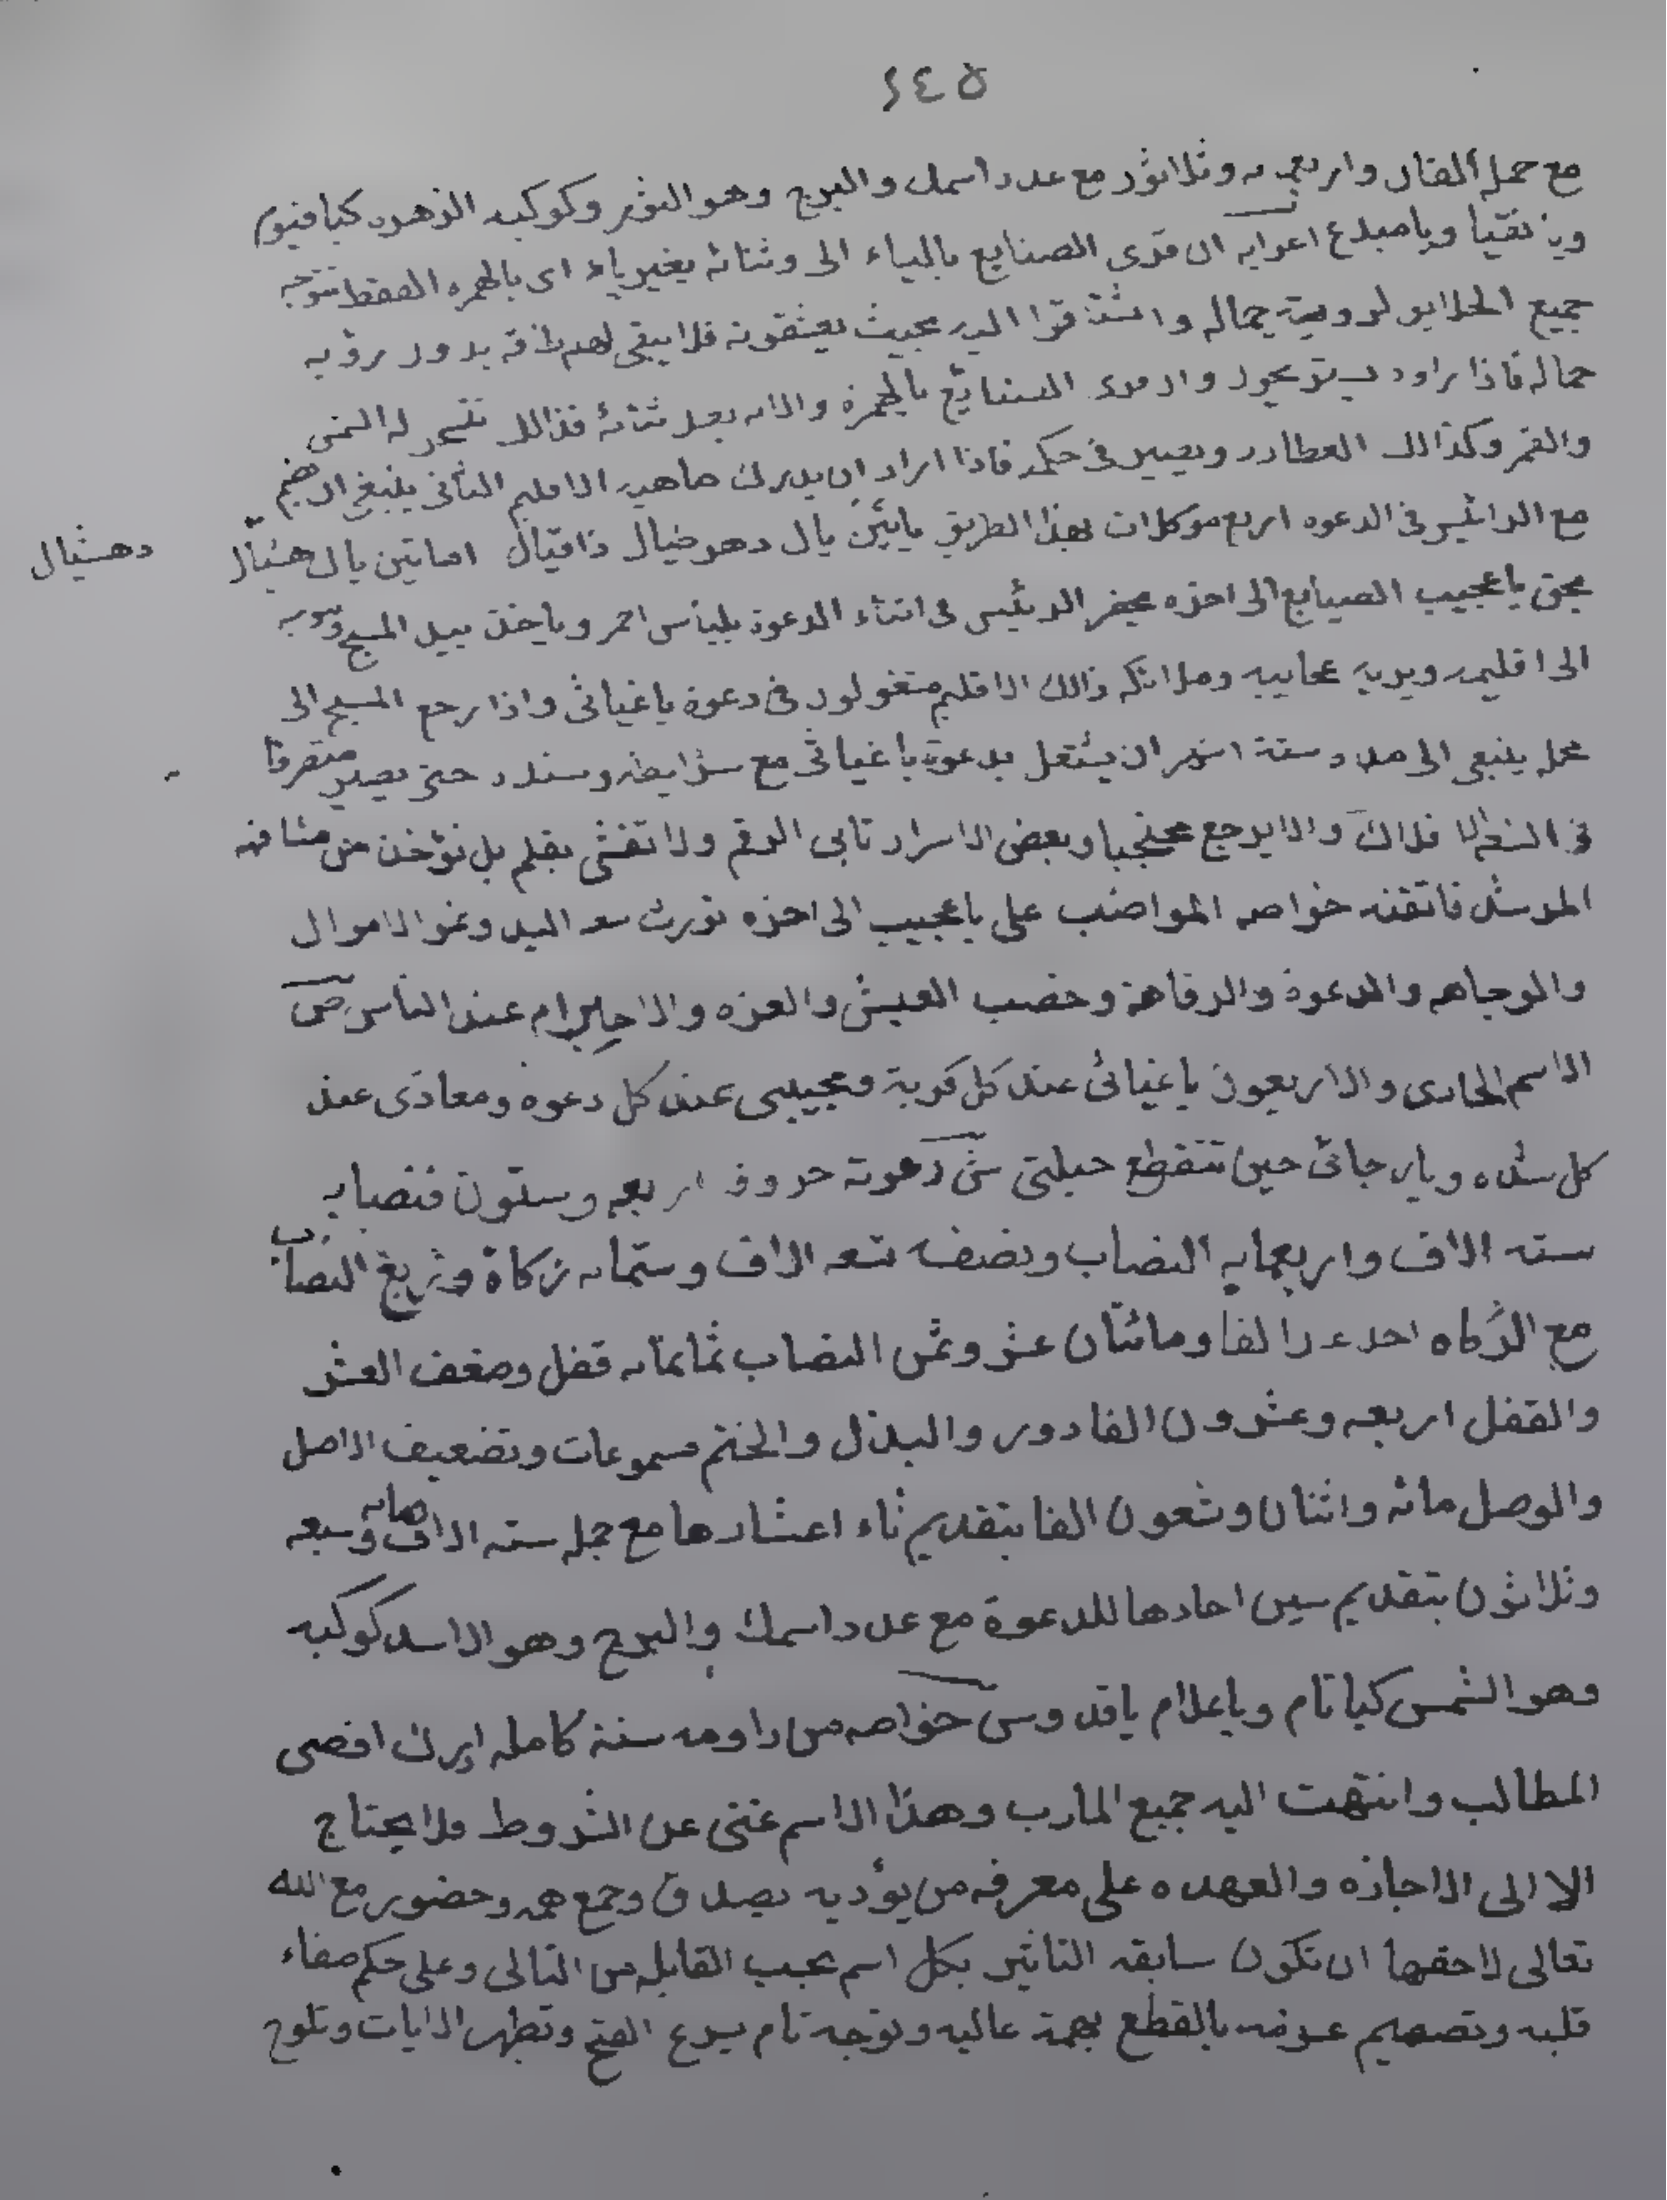 ٢٤٥
مع جمله الفان واربعمايه وثلاثون مع عدد اسمك والبرج وهو الثور وكوكبه الزهره كيا قيوم
ويا نقيا ويا مبدع اعرابه ان قرى الصنايع بالياء الى وثنائه بغير ياء اى بالهمزه الفقط تتوجه
جميع الخلايق لرويية جماله واشتاقوا اليه بحيث يعشقونه فلا يبقى لهم طاقه بدون رؤيه
جماله فاذا والامه بعد ثنائه فذالك تتسخر له الشمس
والقمر وكذالك العطارد ويصير فى حكمه فاذا اراد ان يدرك ماهيه الاقليم الثانى ينبغى ان يضم
مع الرائيس فى الدعوه اربع موكلات بهذا الطريق يائين يال دهوضيال ذاقيال اماتين يال هنيال دهنيال
بحق يا عجيب الصيايع الى اخره يحضر الرئيس فى اثناء الدعوة بلباس احمر وياخذ بيد المسبح
الى اقليمه ويريه عجايبه وملائكه ذالك الاقليم مشغولون فى دعوة يا غياثى واذا رجع المسبح الى
محله ينبغى الى مدد ستة اشهر ان يشتغل بدعوة يا غياثى مع شرايطه وسنده حتى يصير متصرفا
فى التسعه الافلاك والا يرجع محتجبا وبعض الاسرار تابى الرقم ولا تفشى بقلم بل تؤخذ من مشافهه
المرشد فاتقنه خواصه المواضب على يا عجيب الى اخره تورث سعه اليد ونمو الاموال
والوجاهه والدعوة والرفاهة وخصب العيش والعزه والاحترام عند الناس
الاسم الحادى والاربعون يا غياثى عند كل كربة ومجيبى عند كل دعوه ومعاذى عند
كل شده ويا رجائى حين تنقطع حيلتى دعوته حروفه اربعه وستون فنصابه
سته الاف واربعمايه النصاب ونصفه تسعه الاف وستمايه زكاة وربع النصاب
مع الزكاه احد عشر الفا ومائتان عشر وثمن النصاب ثمانمايه قفل وضعف العشر
والقفل اربعه وعشرون الفا دور والبذل والختم مسموعات وتضعيف الاصل
والوصل مائه واثنان وتسعون الفا بتقديم تاء اعشارها مع جمله سته الاف مايه وسبعه
وثلاثون بتقديم سين احادها للدعوة مع عدد اسمك والبرج وهو الاسد كوكبه
وهو الشمس كيا تام ويا علام يا قدوس خواصه من داومه سنة كامله ادرك اقصى
المطالب وانتهت اليه جميع المارب وهذا الاسم غنى عن الشروط فلا يحتاج
الا الى الاجازه والعهده على معرفه من يؤديه بصدق وجمع همه وحضور مع الله
تعالى لاحقها ان تكون سابقه التاثير بكل اسم بحسب القابله من التالى وعلى حكم صفاء
قلبه وتصميم عزمه بالقطع بهمة عاليه وتوجه تام يسرع الفتح وتظهر الايات وتلوح